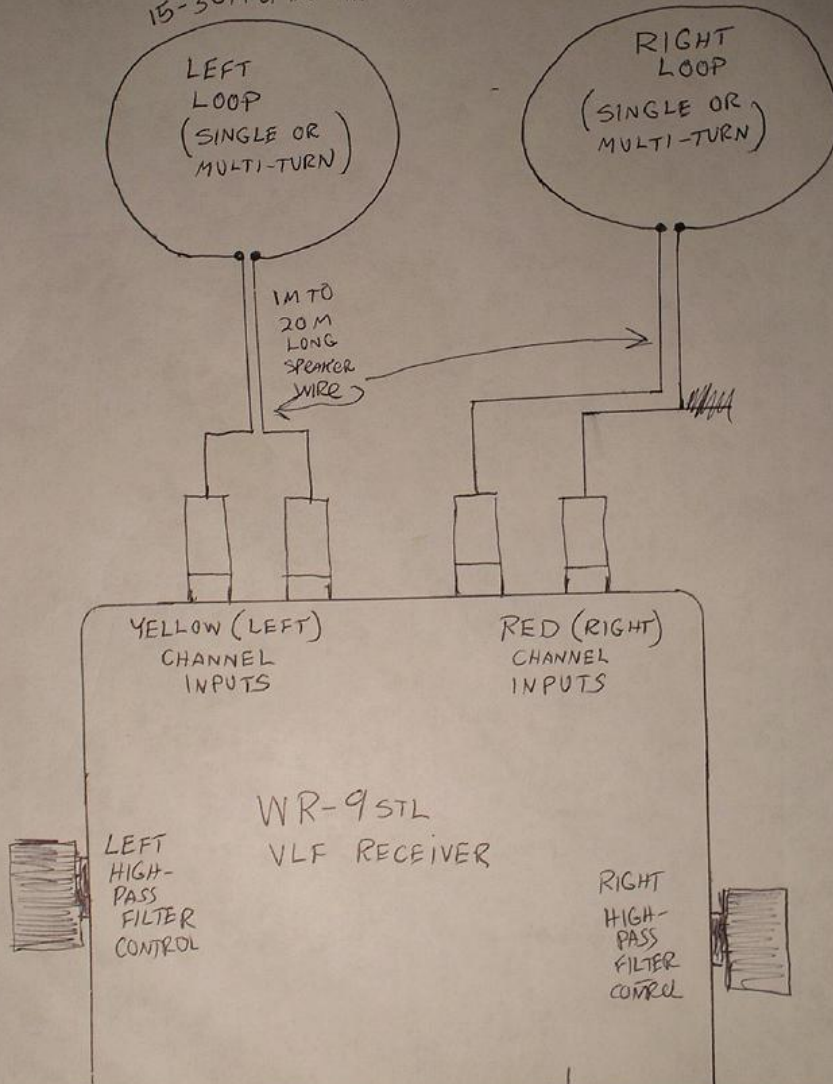 LEFT
LOOP
(SINGLE OR
MULTI-TURN)
RIGHT
LOOP
(SINGLE OR
MULTI-TURN)
1M TO
20M
LONG
SPEAKER
WIRE
YELLOW (LEFT)
CHANNEL
INPUTS
RED (RIGHT)
CHANNEL
INPUTS
WR-9STL
VLF RECEIVER
LEFT
HIGH-
PASS
FILTER
CONTROL
RIGHT
HIGH-
PASS
FILTER
CONTROL